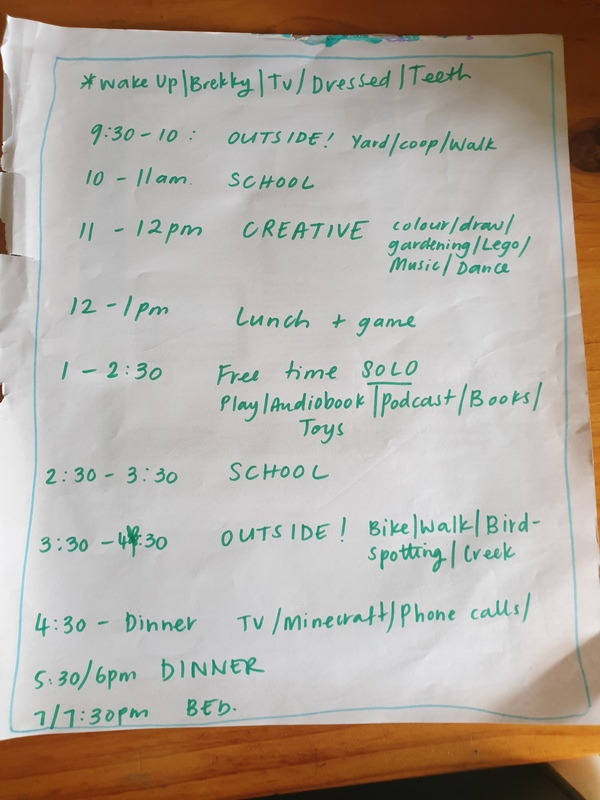 *Wake Up/Brekky/TV/Dressed/Teeth
9:30-10: OUTSIDE! Yard/coop/Walk
10 - 11am. SCHOOL
11 - 12pm CREATIVE colour/draw/
gardening/Lego/
Music/Dance
12 - 1pm Lunch + game
1 - 2:30 Free time SOLO
Play/Audiobook/Podcast/Books/
Toys
2:30 - 3:30 SCHOOL
3:30 - 4:30 OUTSIDE! Bike/Walk/Bird-
spotting/Creek
4:30 - Dinner TV/Minecraft/Phone calls/
5:30/6pm DINNER
7/7:30pm BED.